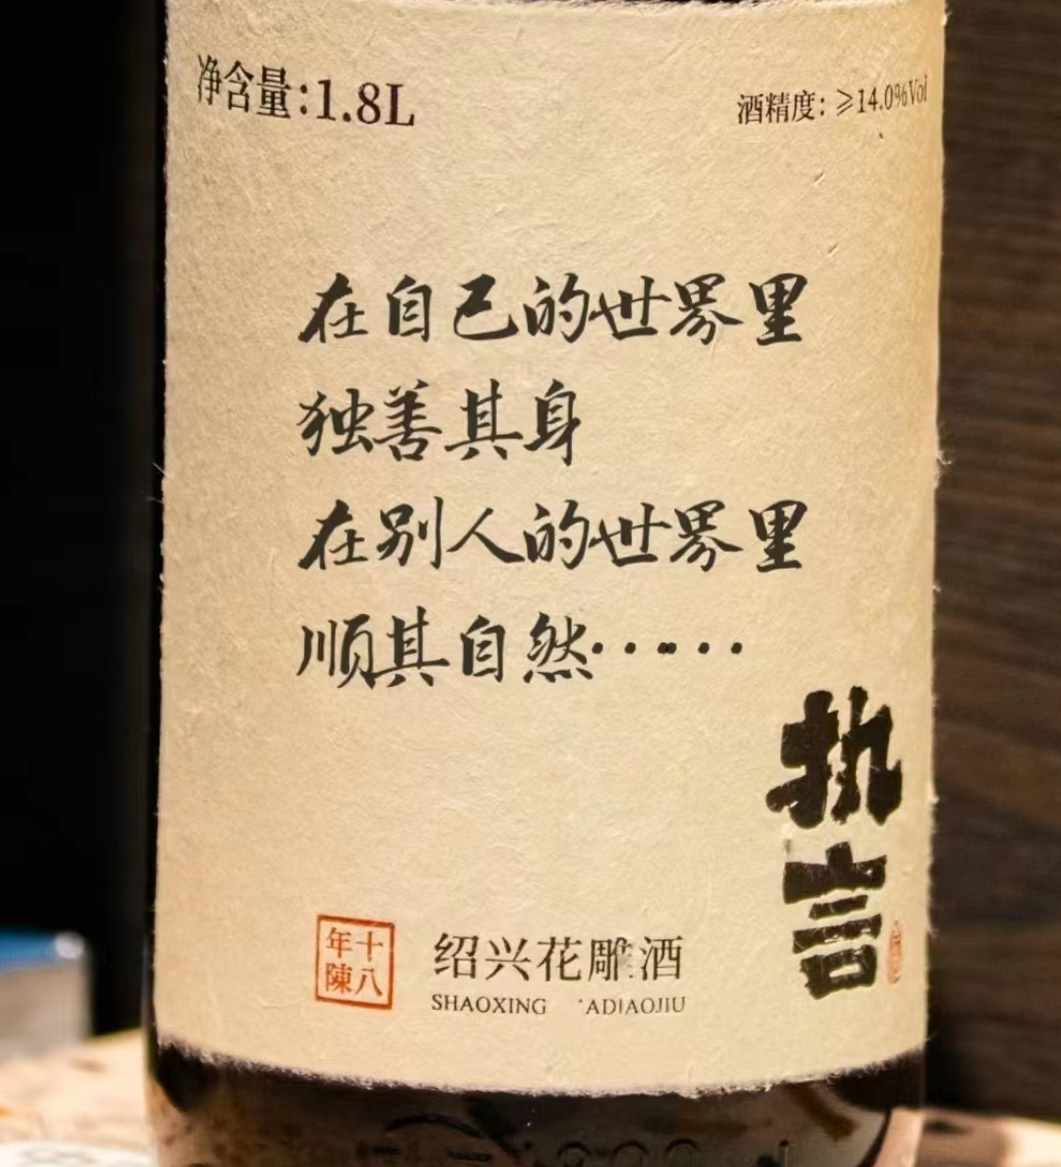 净含量:1.8L
酒精度：≥14.0%Vol
在自己的世界里
独善其身
在别人的世界里
顺其自然······
执言
十八年陳
绍兴花雕酒
SHAOXING ADIAOJIU